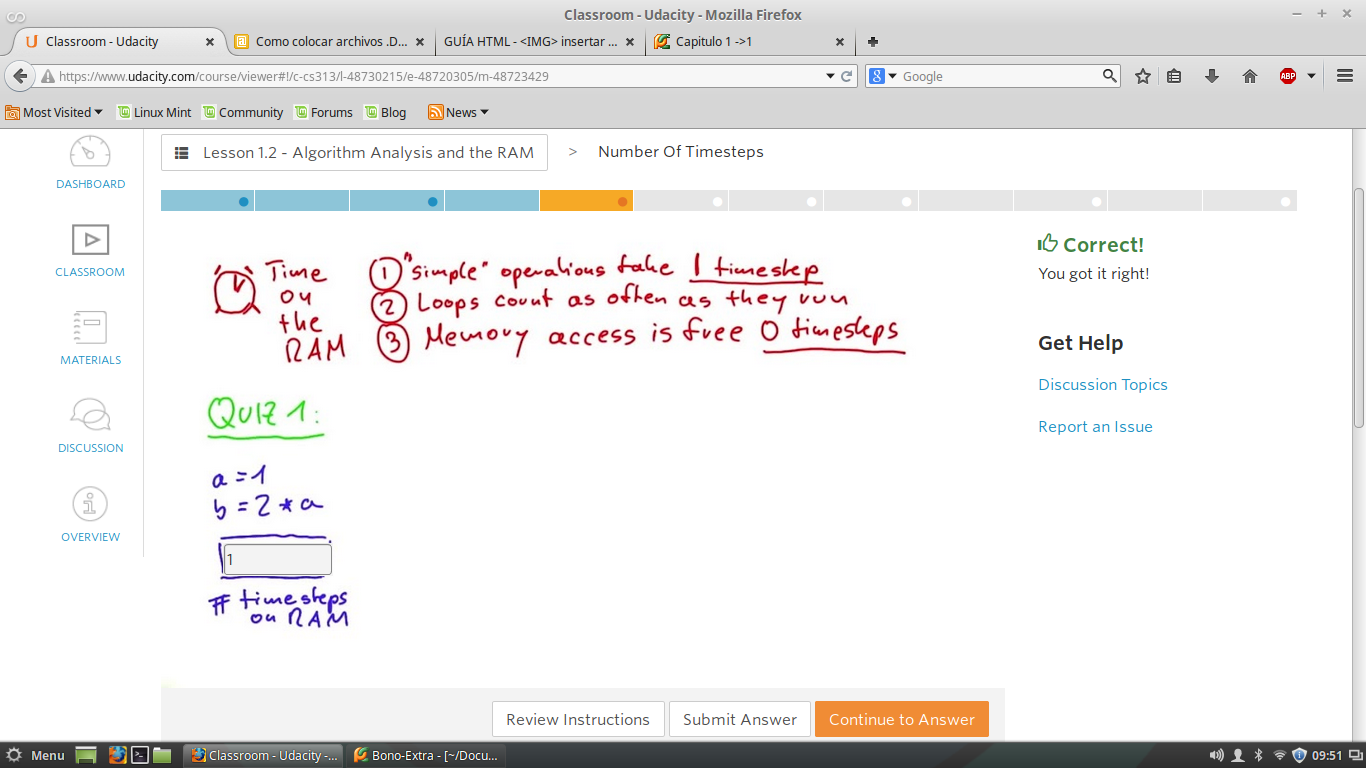 Classroom - Udacity - Mozilla Firefox
Classroom - Udacity
Como colocar archivos .D...
GUÍA HTML - <IMG> insertar ...
Capitulo 1 ->1
https://www.udacity.com/course/viewer#!/c-cs313/l-48730215/e-48720305/m-48723429
Google
ABP
Most Visited
Linux Mint
Community
Forums
Blog
News
DASHBOARD
CLASSROOM
MATERIALS
DISCUSSION
OVERVIEW
Lesson 1.2 - Algorithm Analysis and the RAM > Number Of Timesteps
Time
on
the
RAM
1 "simple" operations take 1 timestep
2 Loops count as often as they run
3 Memory access is free 0 timesteps
QUIZ 1:
a = 1
b = 2 * a
1
# timesteps
on RAM
Correct!
You got it right!
Get Help
Discussion Topics
Report an Issue
Review Instructions
Submit Answer
Continue to Answer
Menu
Classroom - Udacity -...
Bono-Extra - [~/Docu...
09:51